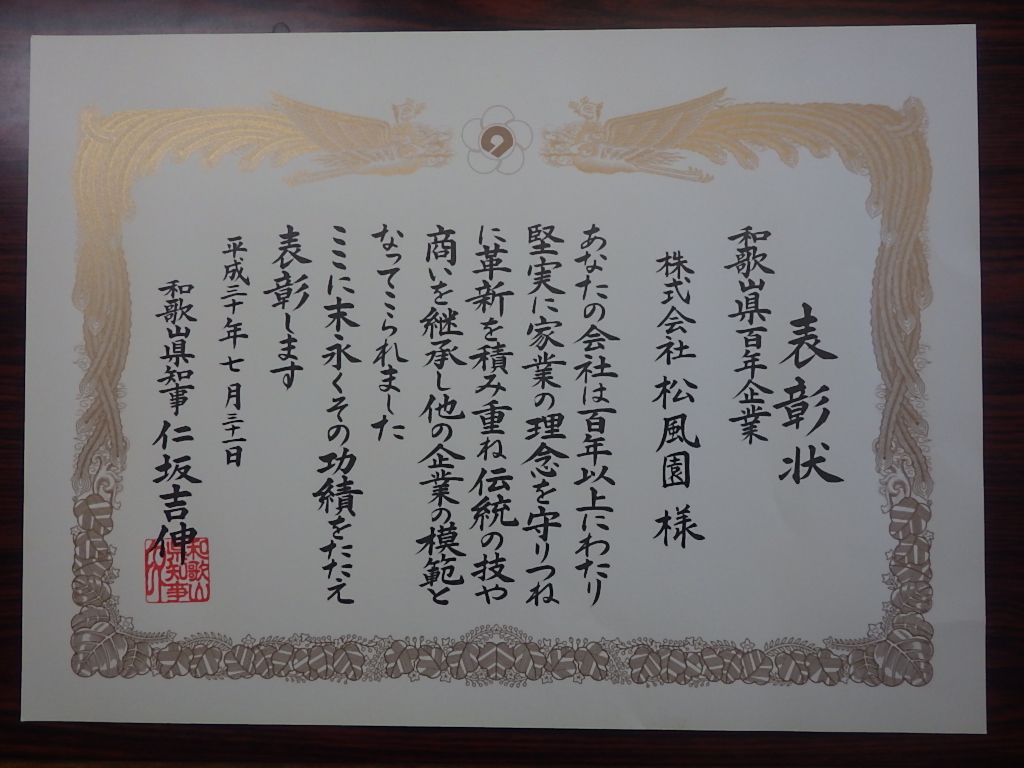 表彰状
和歌山県百年企業
株式会社 松風園 様
あなたの会社は百年以上にわたり
堅実に家業の理念を守りつね
に革新を積み重ね伝統の技や
商いを継承し他の企業の模範と
なってこられました
ここに末永くその功績をたたえ
表彰します
平成三十年七月三十一日
和歌山県知事 仁坂吉伸
和歌山
県知事
之印